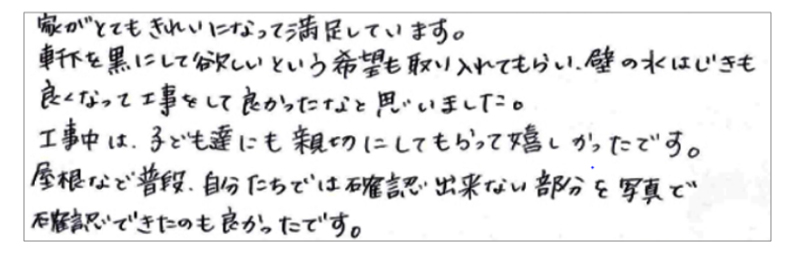 家がとてもきれいになって満足しています。
軒下を黒にして欲しいという希望も取り入れてもらい、壁の水はじきも
良くなって工事をして良かったなと思いました。
工事中は、子ども達にも親切にしてもらって嬉しかったです。
屋根など普段、自分たちでは確認出来ない部分を写真で
確認できたのも良かったです。